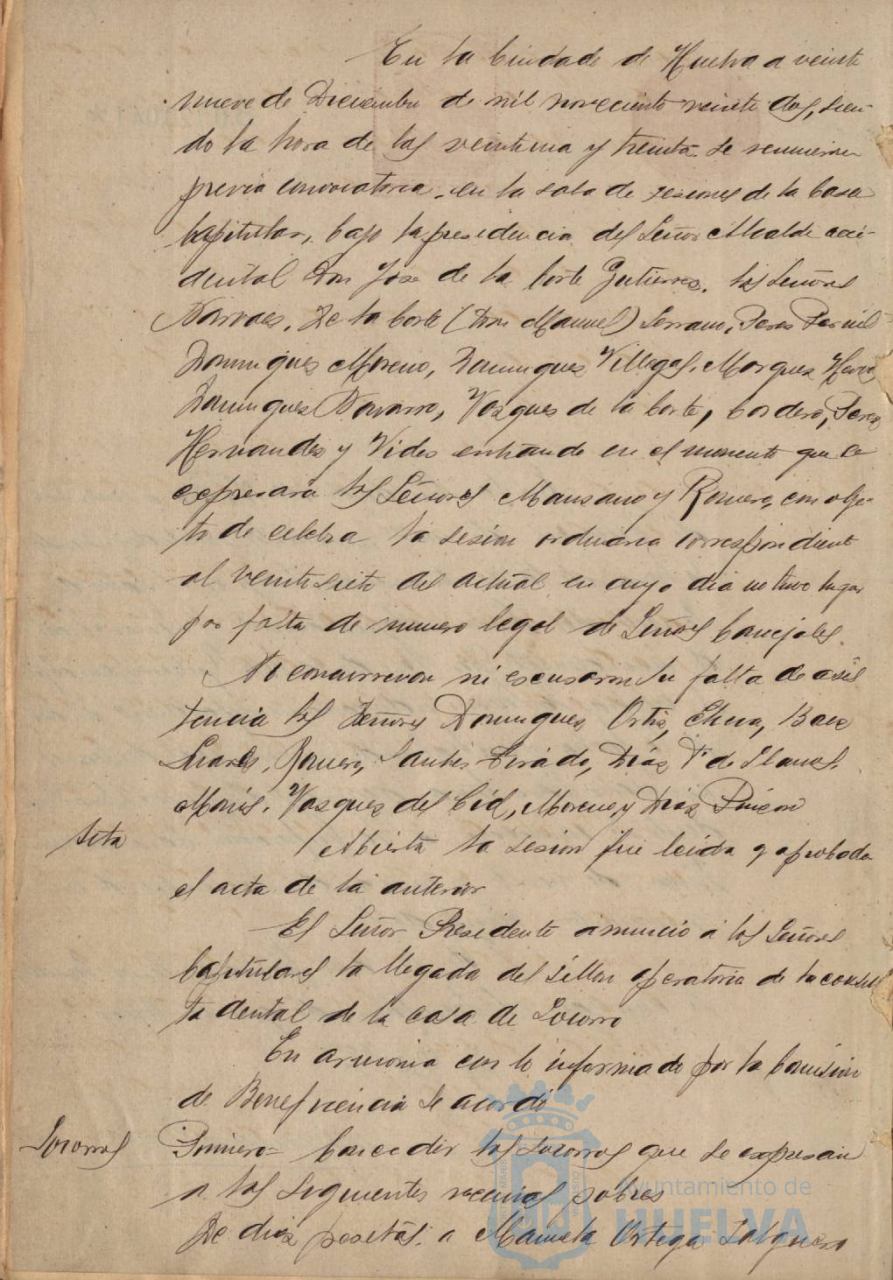 En la Ciudad de Huelva a veinte
nueve de Diciembre de mil novecientos veinte dos, sien-
do la hora de las veintiuna y treinta se reunieron
previa convocatoria en la sala de sesiones de la Casa
Capitular, bajo la presidencia del Señor Alcalde acci-
dental Don Jose de la Corte Gutierrez, los Señores
Narvaes, De la Corte (Don Manuel) Serrano, Peres Pernil
Domingues Moreno, Domingues Villegas, Marques
Domingues Navarro, Vasques de la Corte, Cordero, Peres
Hernandes y Vides entrando en el momento que se
expresara los Señores Mansano y Romero, con obje-
to de celebra la sesion ordinaria correspondiente
al veintisiete del actual en cuyo dia no tuvo lugar
por falta de numero legal de Señores Concejales.
No concurrieron ni escusaron su falta de asis
tencia los Señores Domingues Ortis, Baes
Suares, Romero, Tirado, Dias F. de Llanos
Vasques del Cid, Moreno, y Dias Pinson
Acta
Abierta la sesion fue leida y aprobada
el acta de la anterior
El Señor Presidente anuncio a los Señores
Capitulares la llegada del sillon operatoria de la consul
ta dental de la casa de Socorro
En armonia con lo informado por la Comision
de Beneficencia se acordo
Socorros
Primero= Conceder los socorros que se expresan
a los siguientes vecinos pobres
De dies pesetas: a Manuela Ortega Salguero
Ayuntamiento de
HUELVA